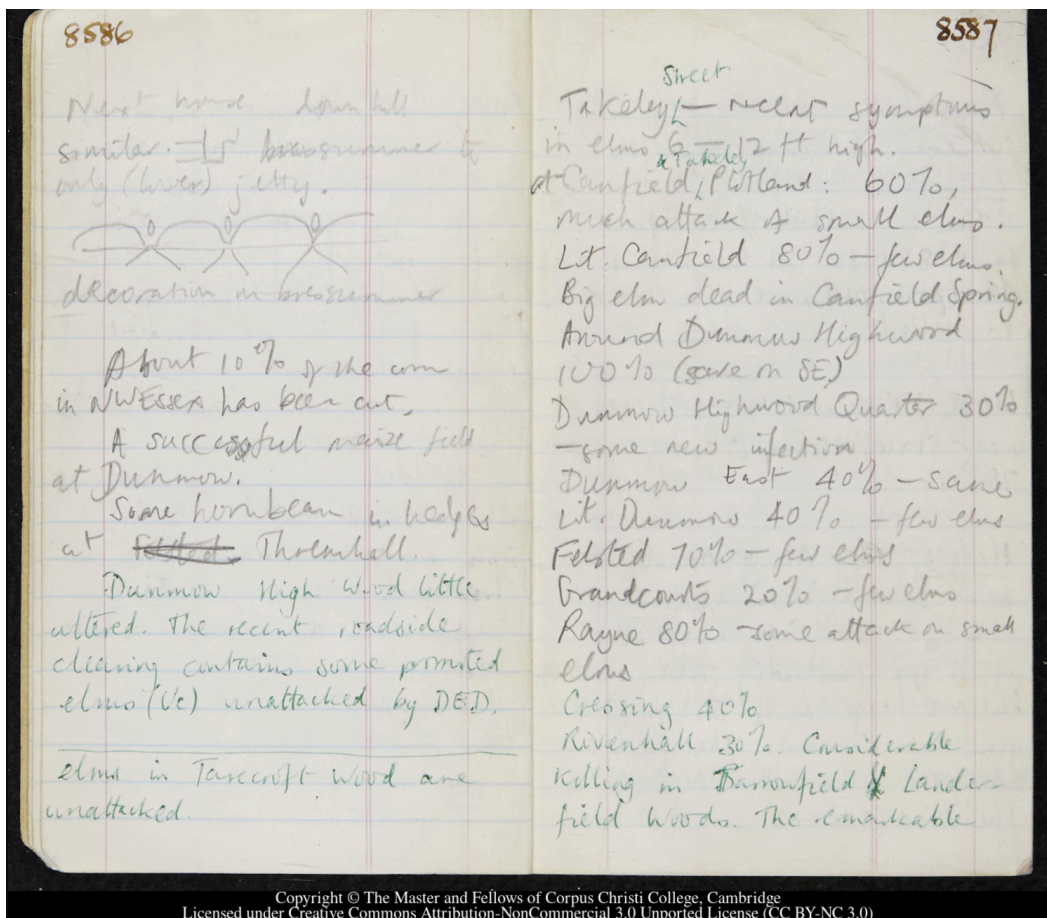 8586
Next house downhill
similar. bressummer to
only (lower) jetty.
decoration in bressummer
About 10% of the corn
in NWEssex has been cut.
A successful maize field
at Dunmow.
Some hornbeam in hedges
at Felsted Thremhall.
Dunmow High Wood little
altered. The recent roadside
clearing contains some promoted
elms (Uc) unattacked by DED.
elms in Tarecroft Wood are
unattacked.
8587
Street
Takeley — recent symptoms
in elms 6 — 12 ft high.
& Takeley
at Canfield, Plotland: 60%,
much attack of small elms.
Lit. Canfield 80% – few elms.
Big elm dead in Canfield Spring.
Around Dunmow Highwood
100% (save on SE)
Dunmow Highwood Quarter 30%
– some new infection
Dunmow East 40% – same
Lit. Dunmow 40% – few elms
Felsted 70% – few elms
Grandcourts 20% – few elms
Rayne 80% – some attack on small
elms
Cressing 40%
Rivenhall 30%. Considerable
killing in Barrowfield & Lander-
field Woods. The remarkable
Copyright © The Master and Fellows of Corpus Christi College, Cambridge
Licensed under Creative Commons Attribution-NonCommercial 3.0 Unported License (CC BY-NC 3.0)